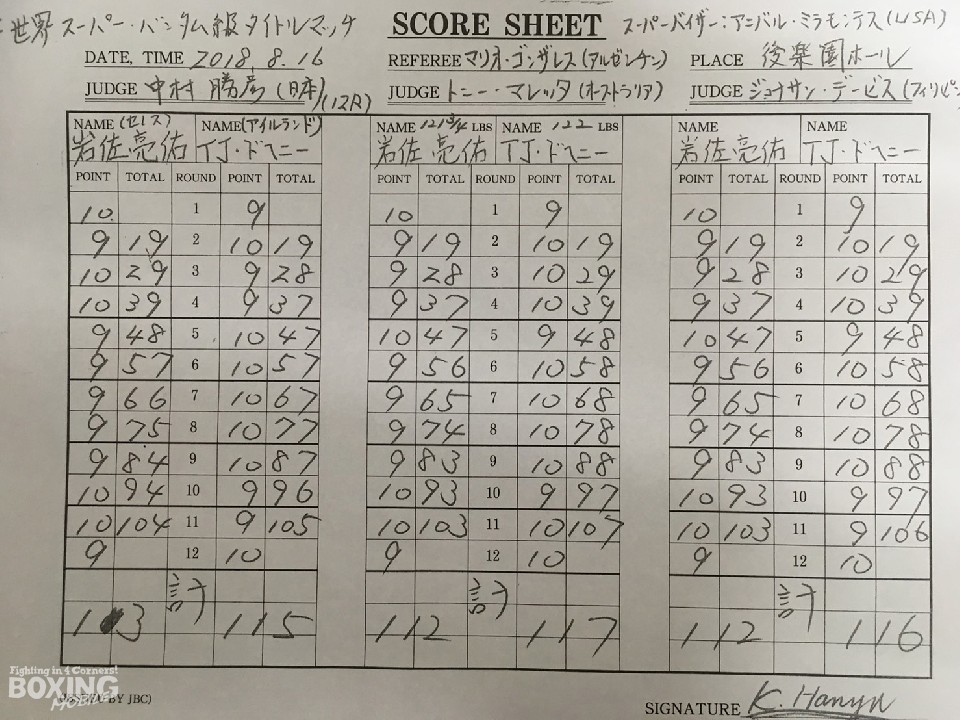 世界スーパー・バンタム級タイトルマッチ SCORE SHEET スーパーバイザー:アニバル・ミラモンテス(USA)
DATE, TIME 2018, 8. 16 REFEREE マリオ・ゴンザレス(アルゼンチン) PLACE 後楽園ホール
JUDGE 中村勝彦(日本) JUDGE トニー・マレッタ(オーストラリア) JUDGE ジョナサン・デービス(フィリピン
(12R)
NAME (セレス) NAME (アイルランド) NAME 121 3/4 LBS NAME 122 LBS NAME NAME
岩佐亮佑 TJ・ドヘニー 岩佐亮佑 TJ・ドヘニー 岩佐亮佑 TJ・ドヘニー
POINT TOTAL ROUND POINT TOTAL POINT TOTAL ROUND POINT TOTAL POINT TOTAL ROUND POINT TOTAL
10 1 9 10 1 9 10 1 9
9 19 2 10 19 9 19 2 10 19 9 19 2 10 19
10 29 3 9 28 9 28 3 10 29 9 28 3 10 29
10 39 4 9 37 9 37 4 10 39 9 37 4 10 39
9 48 5 10 47 10 47 5 9 48 10 47 5 9 48
9 57 6 10 57 9 56 6 10 58 9 56 6 10 58
9 66 7 10 67 9 65 7 10 68 9 65 7 10 68
9 75 8 10 77 9 74 8 10 78 9 74 8 10 78
9 84 9 10 87 9 83 9 10 88 9 83 9 10 88
10 94 10 9 96 10 93 10 9 97 10 93 10 9 97
10 104 11 9 105 10 103 11 10 107 10 103 11 9 106
9 12 10 9 12 10 9 12 10
計 計 計
113 115 112 117 112 116
Fighting in 4 Corners!
BOXING
MOBILE
BY JBC)
SIGNATURE K. Hanyu